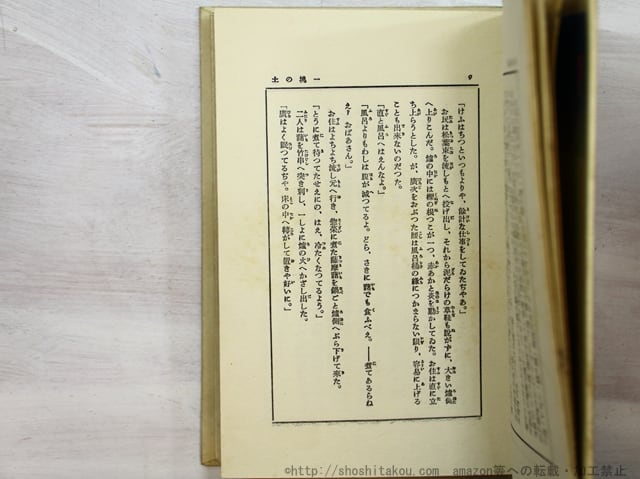 一塊の土
9
「けふはちつといつもよりや、餘計な仕事をしてゐたぢやあ。」
お民は松葉束を流しもとへ投げ出し、それから泥だらけの草鞋も脱がずに、大きい爐側
へ上りこんだ。爐の中には櫟の根つこが一つ、赤あかと炎を動かしてゐた。お住は直に立
ち上らうとした。が、廣次をおぶつた腰は風呂桶の緣につかまらない限り、容易に上げる
ことも出來ないのだつた。
「直と風呂へはえんなよ。」
「風呂よりもわしは腹が減つてるよ。どら、さきに藷でも食ふべえ。――煮てあるらね
え？ おばあさん。」
お住はよちよち流し元へ行き、惣菜に煮た薩摩藷を鍋ごと爐側へぶら下げて來た。
「とうに煮て待つてたせえにの、はえ、冷たくなつてるよう。」
二人は藷を竹串へ突き刺し、一しよに爐の火へかざし出した。
「廣はよく眠つてるぢや。床の中へ轉がして置きや好いに。」
©http://shoshitakou.com amazon等への転載・加工禁止